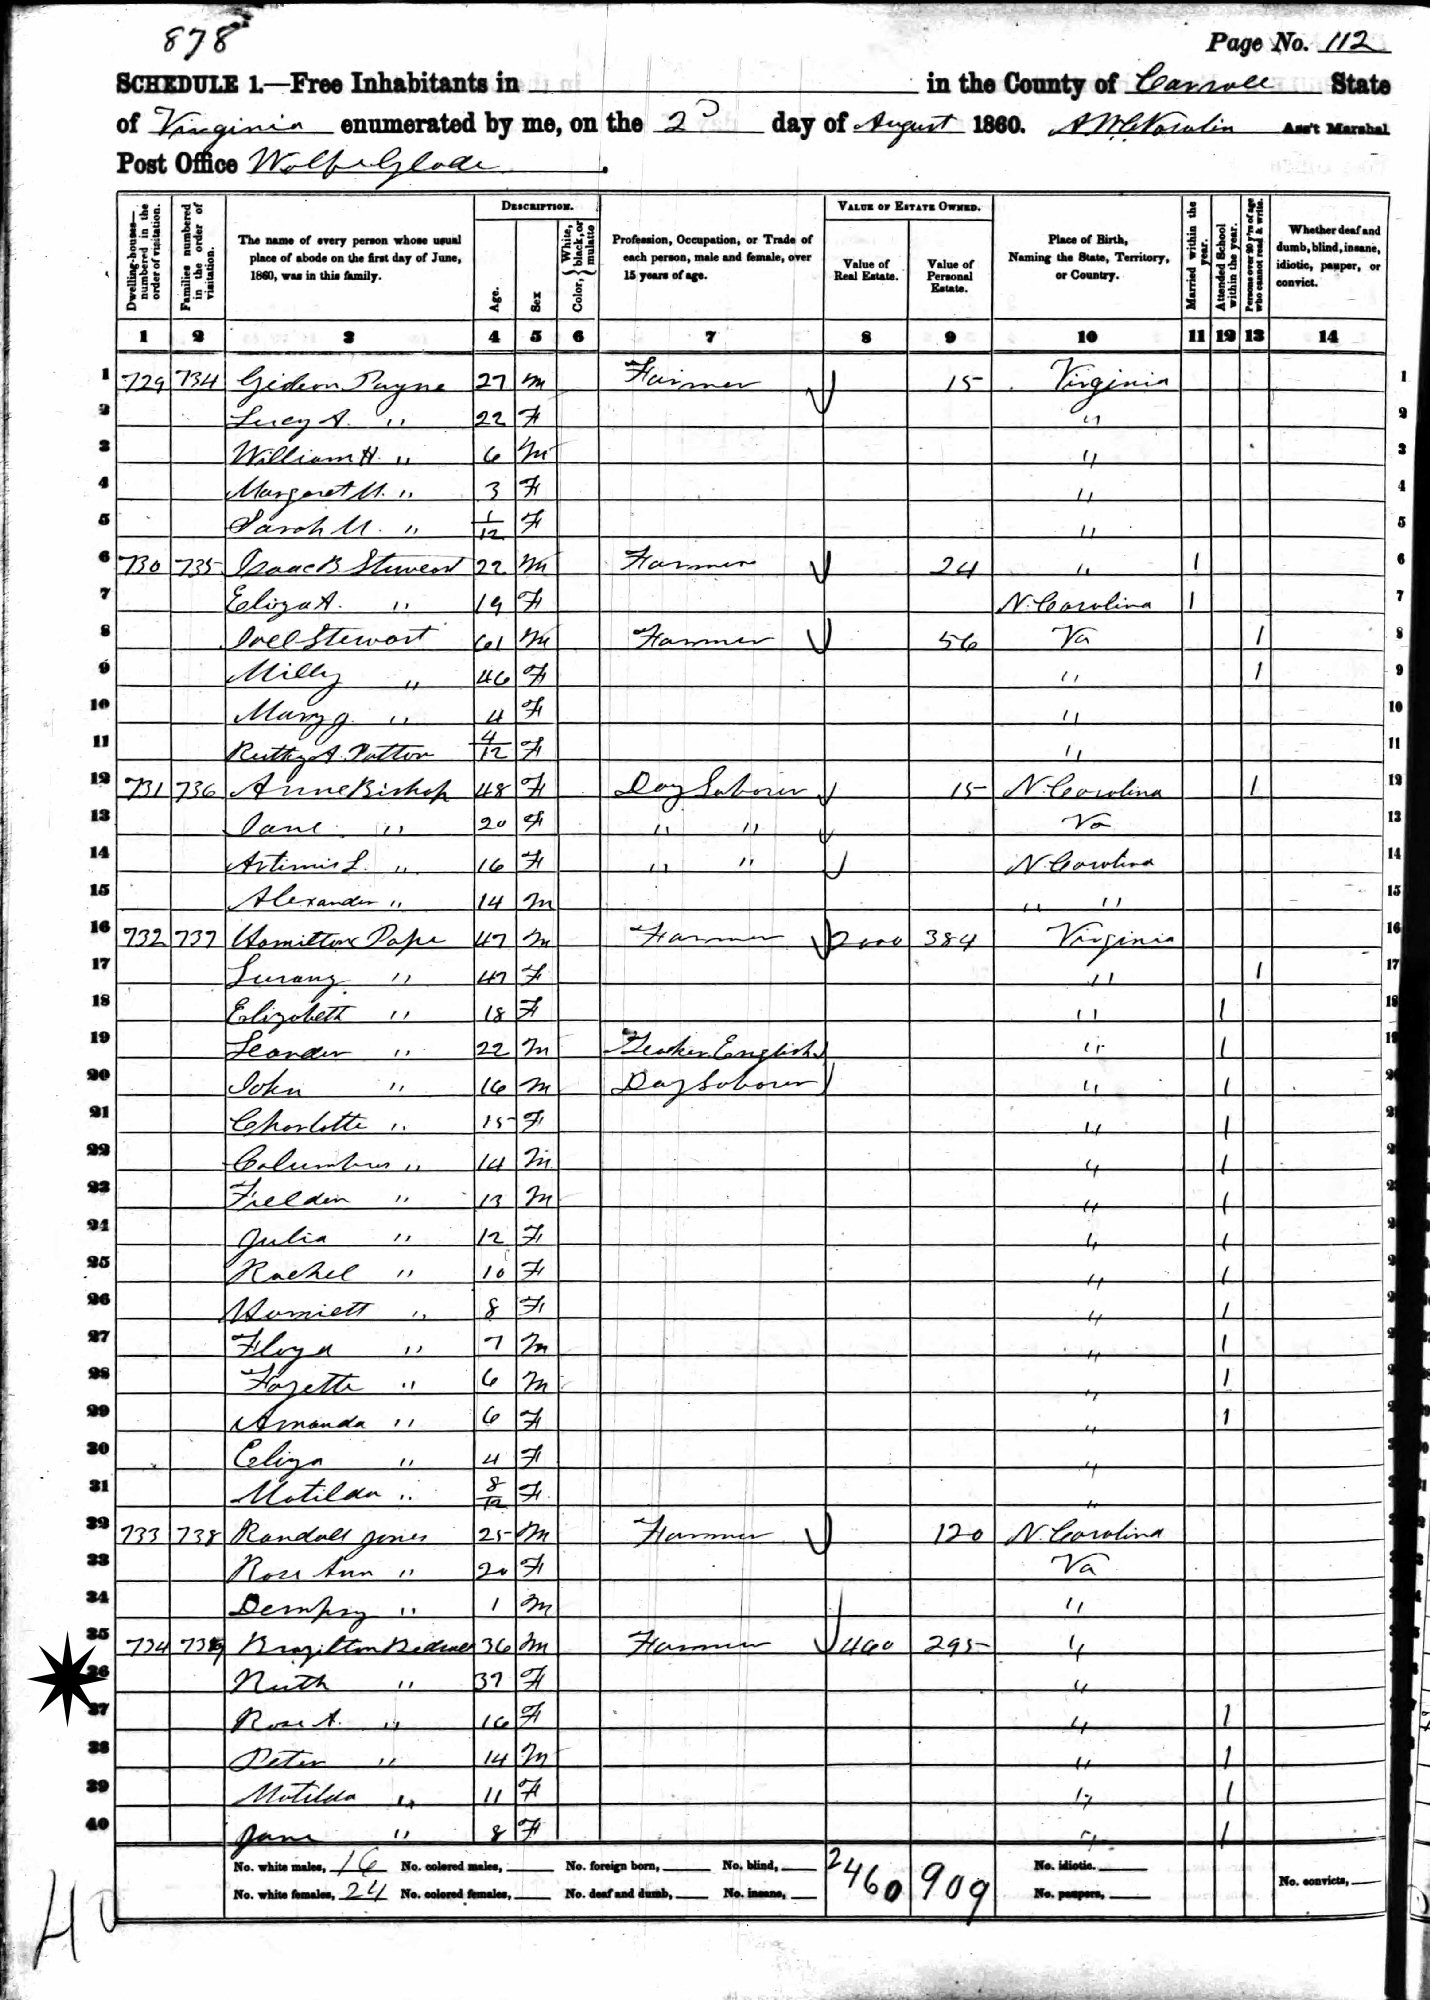 878
Page No. 112
SCHEDULE 1.—Free Inhabitants in in the County of Carroll State
of Virginia enumerated by me, on the 2d day of August 1860. Ass't Marshal
Post Office Wolfe Glade.
Dwelling-houses—numbered in the order of visitation.
Families numbered in the order of visitation.
The name of every person whose usual place of abode on the first day of June, 1860, was in this family.
DESCRIPTION.
Age.
Sex
Color, { White, black, or mulatto
Profession, Occupation, or Trade of each person, male and female, over 15 years of age.
VALUE OF ESTATE OWNED.
Value of Real Estate.
Value of Personal Estate.
Place of Birth, Naming the State, Territory, or Country.
Married within the year.
Attended School within the year.
Persons over 20 y'rs of age who cannot read & write.
Whether deaf and dumb, blind, insane, idiotic, pauper, or convict.
1 2 3 4 5 6 7 8 9 10 11 12 13 14
1 729 734 Gideon Payne 27 m Farmer 15 Virginia 1
2 Lucy A. " 22 F " 2
3 William H. " 6 m " 3
4 Margaret M. " 3 F " 4
5 Sarah M. " 1/12 F " 5
6 730 735 Isaac B Steweart 22 m Farmer 24 " 1 6
7 Eliza A. " 19 F N. Carolina 1 7
8 Joel Stewart 61 m Farmer 56 Va 1 8
9 Milly " 46 F " 1 9
10 Mary J. " 4 F " 10
11 Ruthy A. Patton 4/12 F " 11
12 731 736 Anne Bishop 48 F Day Laborer 15 N. Carolina 1 12
13 Jane " 20 F " " Va 13
14 Artimis L. " 16 F " " N. Carolina 14
15 Alexander " 14 m " " 15
16 732 737 Hamilton Pope 47 m Farmer 2000 384 Virginia 16
17 Lurany " 47 F " 1 17
18 Elizabeth " 18 F " 1 18
19 Leander " 22 m Teacher English " 1 19
20 John " 16 m Day Laborer " 1 20
21 Charlotte " 15 F " 1
22 Columbus " 14 m " 1
23 Fielden " 13 m " 1
24 Julia " 12 F " 1
25 Rachel " 10 F " 1
26 Harriett " 8 F " 1
27 Floyd " 7 m " 1
28 Fayette " 6 m " 1
29 Amanda " 6 F " 1
30 Eliza " 4 F "
31 Matilda " 8/12 F "
32 733 738 Randall Jones 25 m Farmer 120 N. Carolina
33 Rose Ann " 20 F Va
34 Dempsy " 1 m "
35 734 739 Brazilton Bedsaul 36 m Farmer 460 295 "
36 Ruth " 37 F "
37 Rose A. " 16 F " 1
38 Peter " 14 m " 1
39 Matilda " 11 F " 1
40 Jane " 8 F " 1
No. white males, 16 No. colored males, No. foreign born, No. blind, 2460 909 No. idiotic.
No. white females, 24 No. colored females, No. deaf and dumb, No. insane, No. paupers, No. convicts,
40